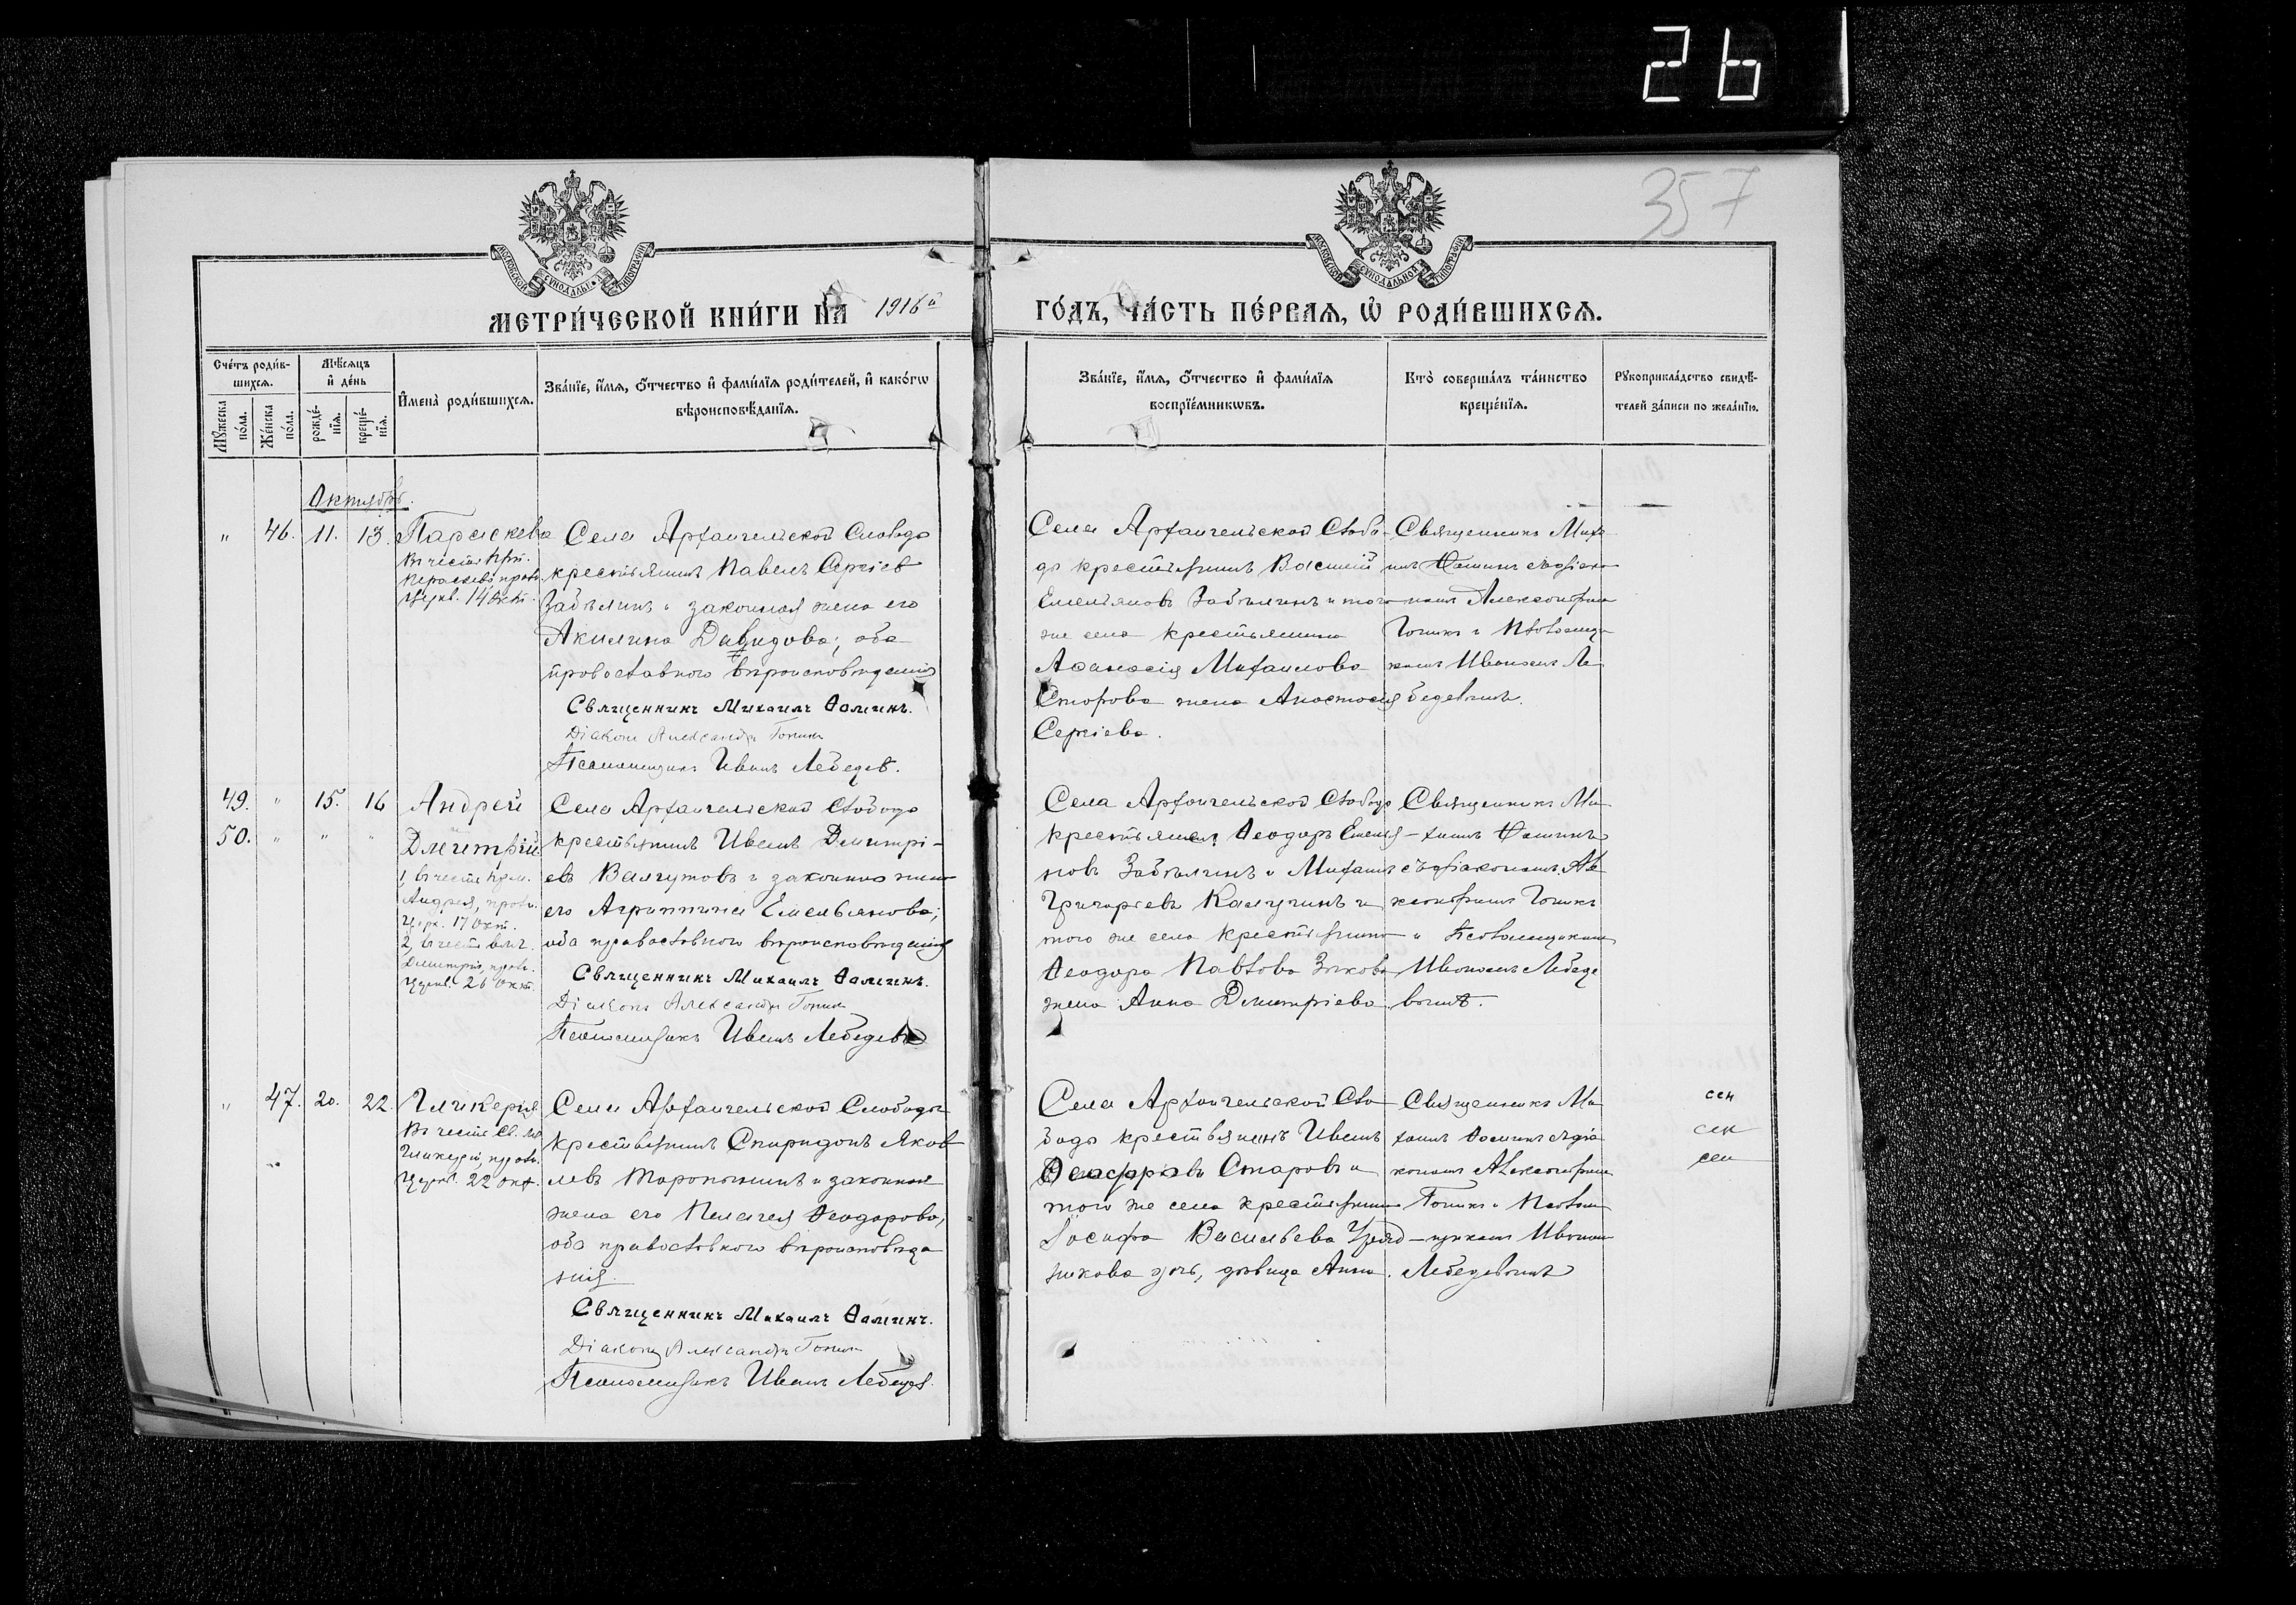 26
357
МОСКОВСКОЙ СѴНОДАЛЬНОЙ ТИПОГРАФІИ
МОСКОВСКОЙ СѴНОДАЛЬНОЙ ТИПОГРАФІИ
МЕТРИ́ЧЕСКОЙ КНИ́ГИ НА 1916й
ГО́ДЪ, ЧА́СТЬ ПЕ́РВАѦ, Ѡ РОДИ́ВШИХСѦ.
Сче́тъ роди́в-
шихсѧ.
Мꙋ́жеска по́ла.
Же́нска по́ла.
Мѣ́сѧцъ и де́нь
рожде́-нїѧ.
креще́-нїѧ.
Имена̀ роди́вшихсѧ.
Зва́нїе, и́мѧ, о́тчество и фами́лїѧ роди́телей, и како́гѡ
вѣроисповѣ́данїѧ.
Зва́нїе, и́мѧ, о́тчество и фами́лїѧ
воспрїе́мникѡвъ.
Кто̀ соверша́лъ та́инство
креще́нїѧ.
Рꙋкоприкла́дство свидѣ́-
телей за́писи по жела́нїю.
Октябрь.
" 46. 11. 13. Параскева
Въ честь Прп.
Параскевы праз.
Церкв. 14 Окт.
Села Архангельской Слободы
крестьянинъ Павелъ Сергіев
Забѣлинъ и законная жена его
Акилина Давидова; оба
православного вѣроисповѣданія
Священникъ Михаилъ Ѳоминъ.
Діаконъ Александръ Тонинъ
Псаломщикъ Иванъ Лебедев.
Села Архангельской Слобо-
ды крестьянинъ Василий
Емельяновъ Забѣлинъ и того
же села крестьянина
Аѳанасія Михаилова
Старова жена Анастасія
Сергіева.
Священникъ Миха-
илъ Ѳоминъ съ діако-
номъ Александромъ
Тонинъ и Псаломщи-
комъ Иваномъ Ле-
бедевымъ.
49. " 15. 16 Андрей
50. " " " Дмитрій
1, въ честь Прп.
Андрея, празд.
Церк. 17 Окт.
2, въ честь вмч.
Димитрія, празд.
Церкв. 26 Окт.
Села Архангельской Слободы
крестьянинъ Иванъ Дмитрі-
евъ Валгутовъ и законная жена
его Агриппина Емельянова;
оба православного вѣроисповѣданія
Священникъ Михаилъ Ѳоминъ.
Діаконъ Александръ Тонинъ
Псаломщикъ Иванъ Лебедевъ
Села Архангельской Слободы
крестьянинъ Ѳеодоръ Емелья-
новъ Забѣлинъ и Михаилъ
Григорьевъ Калугинъ и
того же села крестьянина
Ѳеодора Павлова Зыкова
жена Анна Дмитріева
Священникъ Ми-
хаилъ Ѳоминъ
съ діакономъ Але-
ксандромъ Тонинъ
и Псаломщикомъ
Иваномъ Лебеде-
вымъ.
" 47. 20. 22. Гликерія
Въ честь Св. Мч.
Гликеріи, празд.
Церкв. 22 окт.
Села Архангельской Слободы
крестьянинъ Спиридонъ Яков
левъ Торопыгинъ и законная
жена его Пелагея Ѳеодорова;
оба православного вѣроисповѣда
нія.
Священникъ Михаилъ Ѳоминъ.
Діаконъ Александръ Тонинъ
Псаломщикъ Иванъ Лебедев.
Села Архангельской Сло-
боды крестьянинъ Иванъ
Ѳеодоровъ Старовъ и
того же села крестьянина
Іосифа Васильева
дочь, дѣвица Анна.
Священникъ Ми-
хаилъ Ѳоминъ съ діа-
кономъ Александромъ
Тонинъ и Псалом-
щикомъ Иваномъ
Лебедевымъ
сен
сен
сен